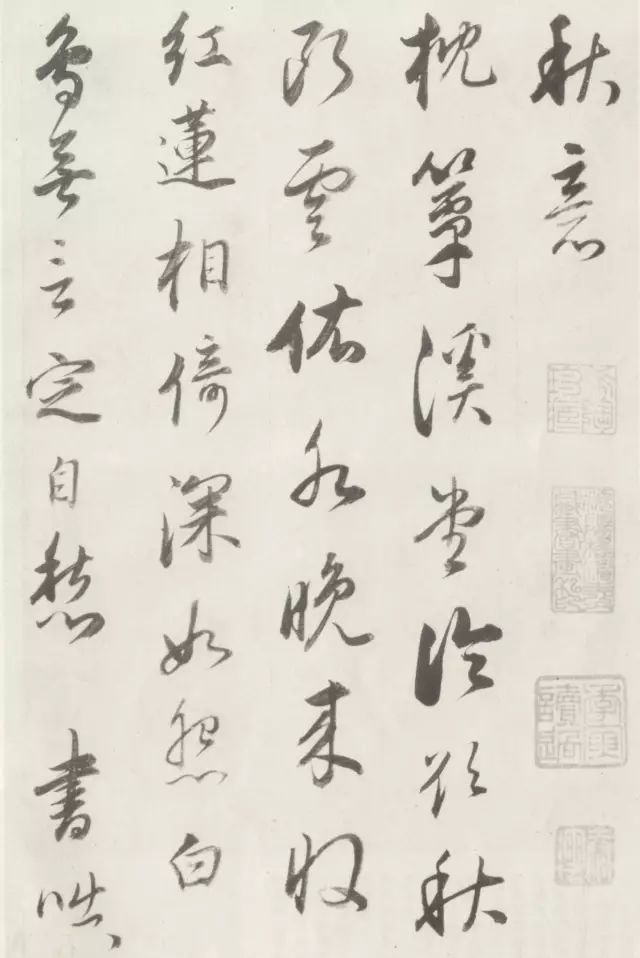 秋意
枕簟溪堂冷欲秋
斷雲依水晚來收
紅蓮相倚深如怨白
鳥無言定自愁 書咄